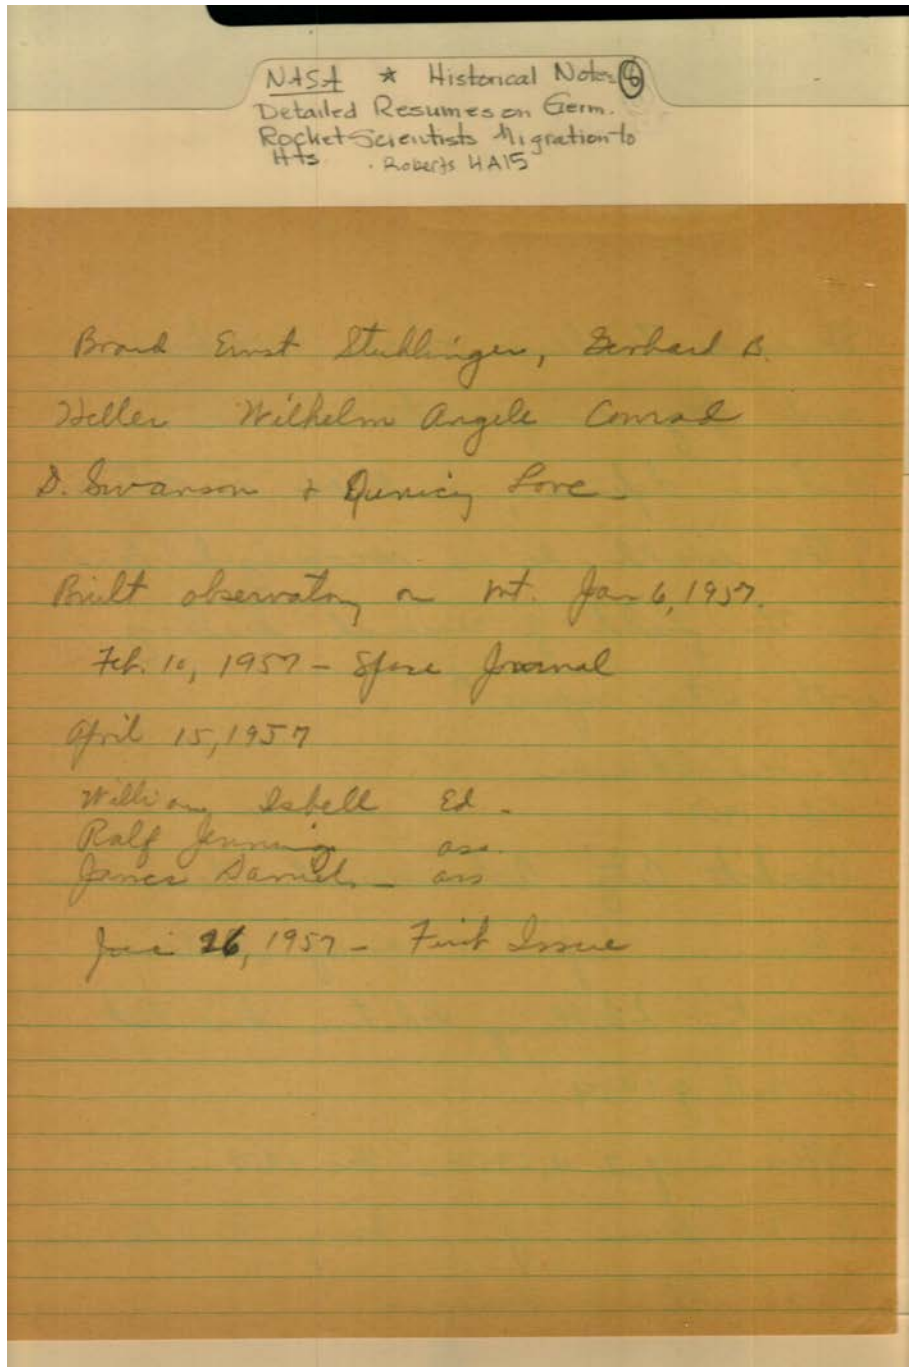 NASA * Historical Notes 6
Detailed Resumes on Germ.
Rocket Scientists Migration to
Hts . Roberts HA15
Board Ernst Stuhlinger, Gerhard B.
Heller Wilhelm Angele Conrad
D. Swanson & Love -
Built observatory on Mt. Jan 6, 1957.
Feb. 10, 1957 - Space Journal
April 15, 1957
William Isbell Ed -
Ralf Jennings ass.
James Daniels - ass
26, 1957 - First Issue